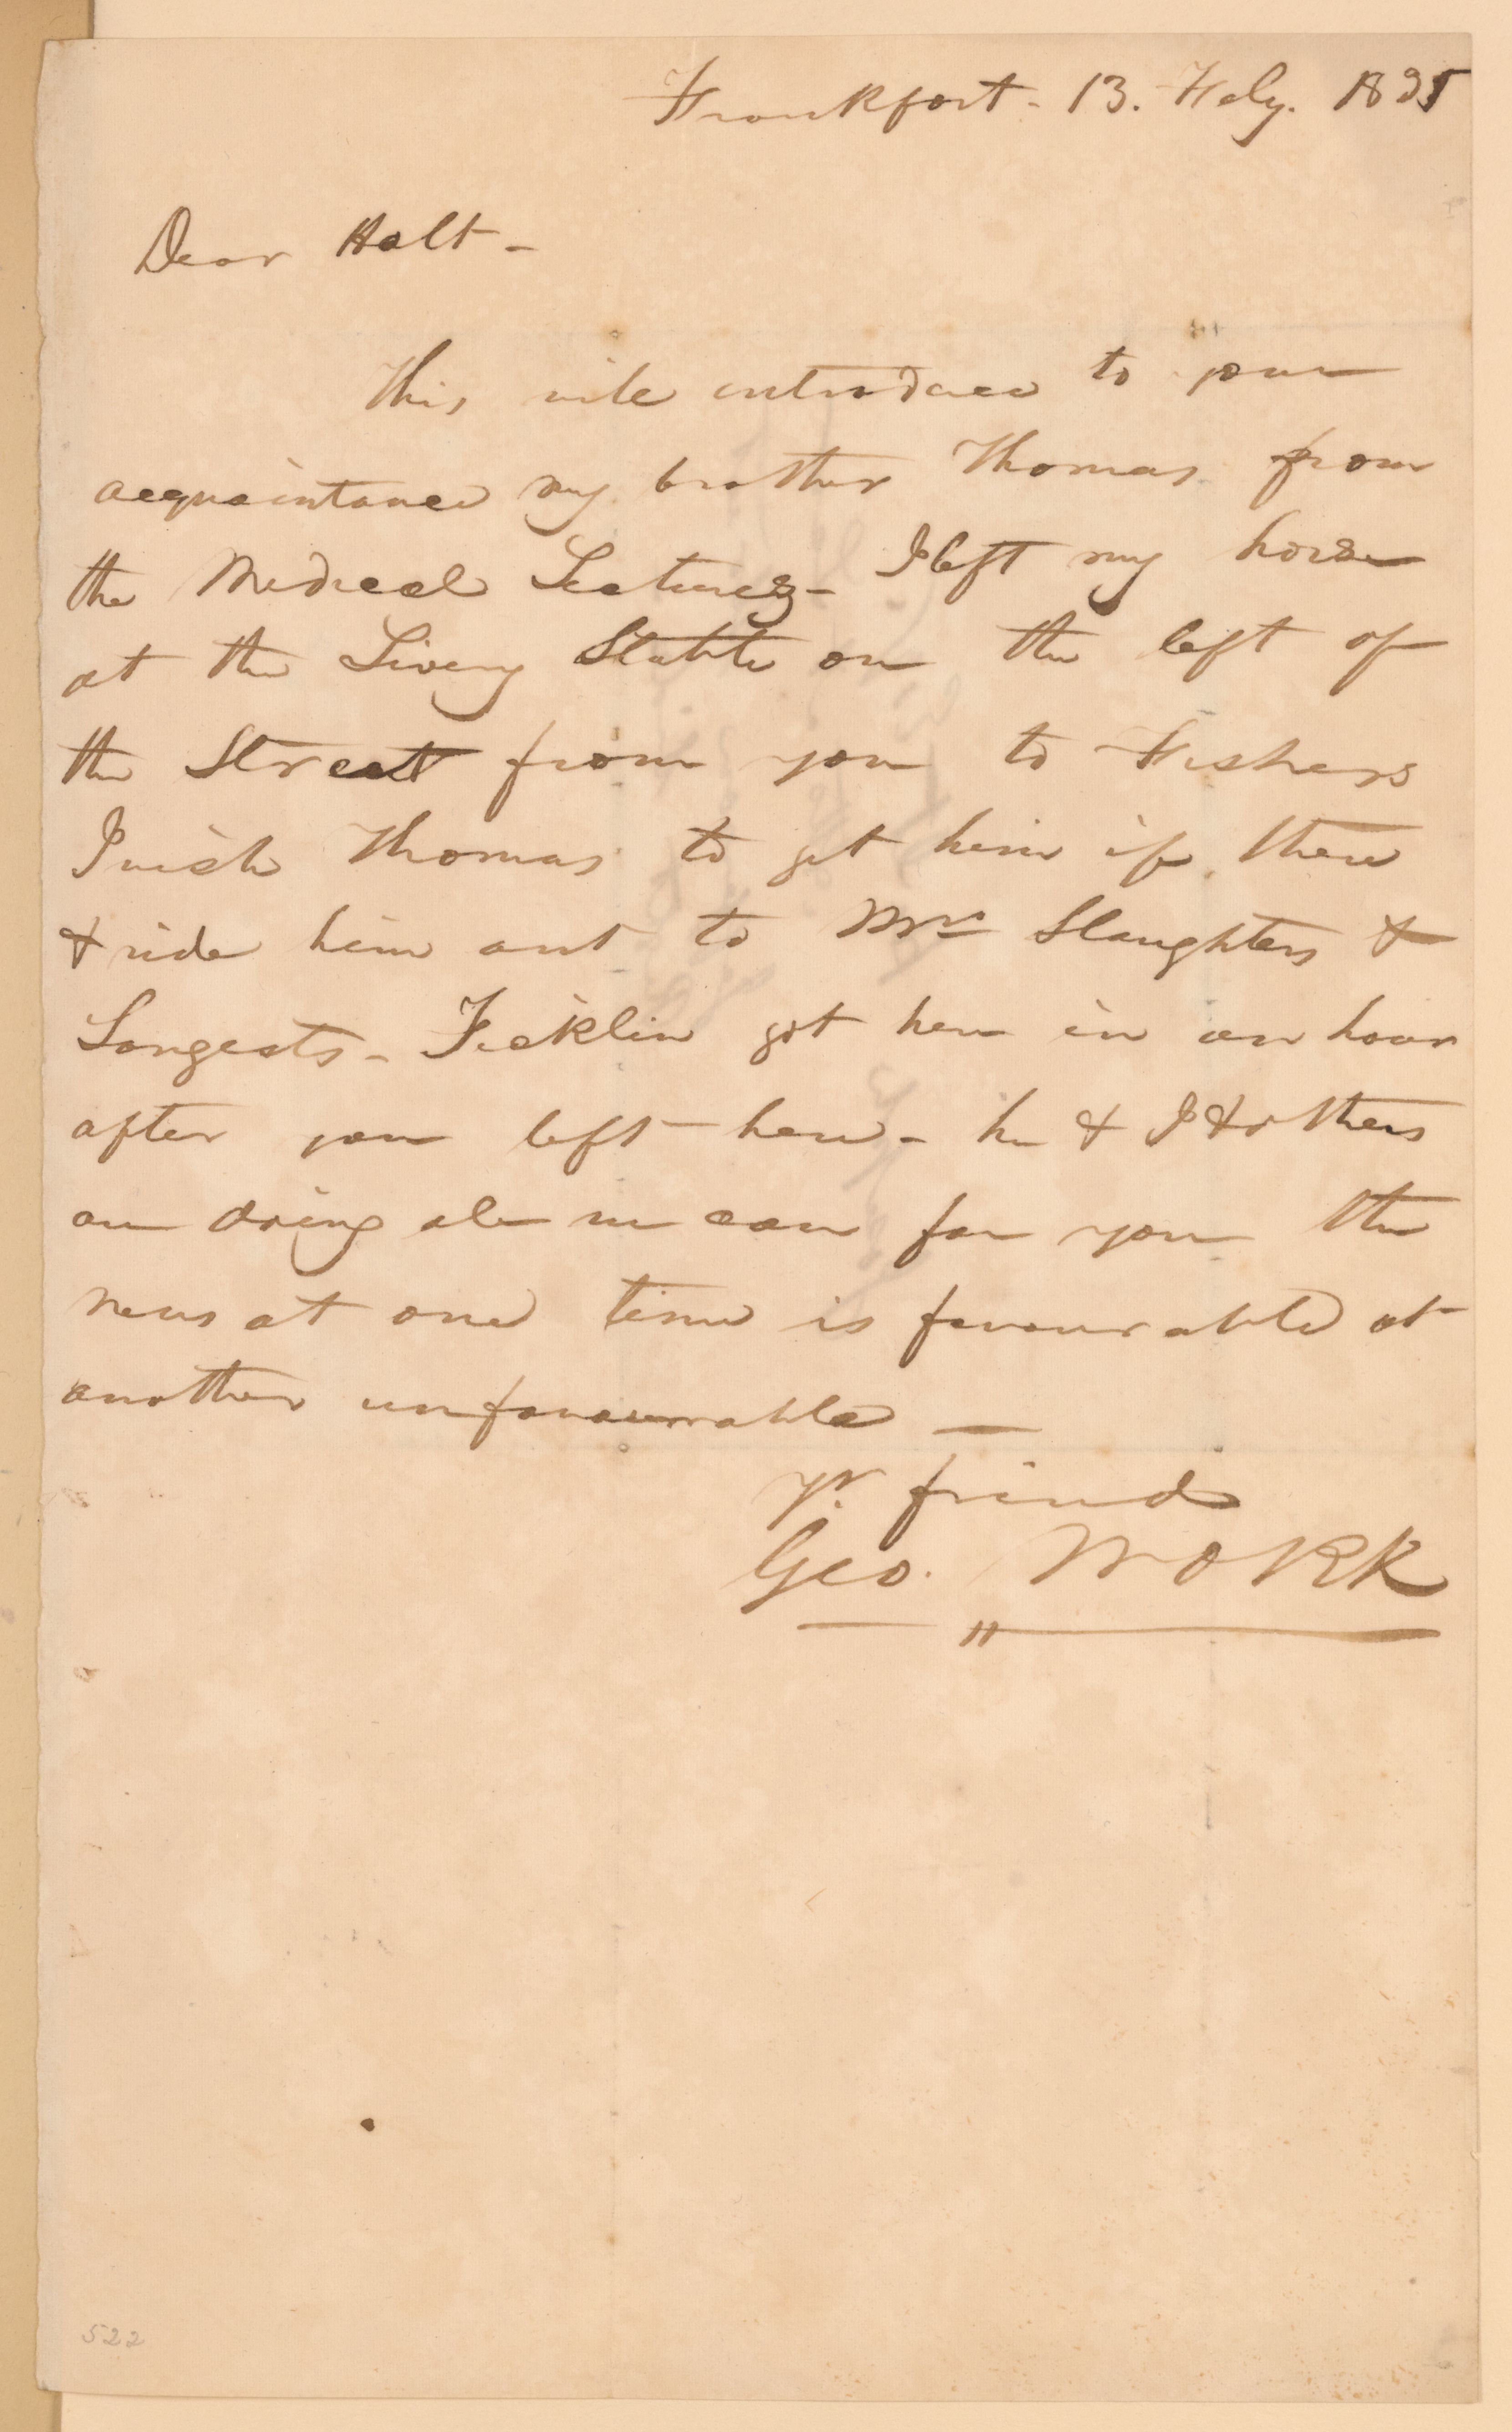 Frankfort - 13. Feby. 1835
Dear Holt -
This will introduce to your
acquaintance my brother Thomas from
the Medical Lectures - I left my horse
at the Livery Stable on the left of
the Street from you to Fishers
I wish Thomas to get him if there
& ride him out to Mrs Slaughters &
Longests - Ficklin got here in an hour
after you left here - he & I & others
are doing all we can for you the
news at one time is favourable at
another unfavourable —
yr. friend
Geo. WORK
522